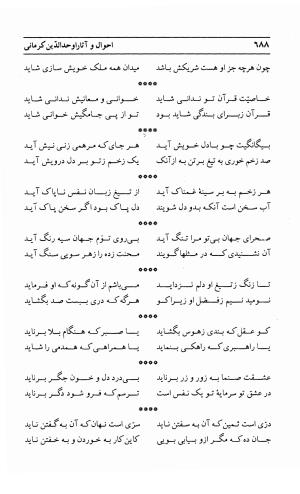 ۶۸۸ احوال و آثار اوحدالدّین کرمانی
چون هرچه جز او هست شریکش باشد میدان همه ملک خویش سازی شاید
****
خاصیّت قرآن تو ندانی شاید خوانی و معانیش ندانی شاید
قرآن ز برای بندگی شاید بود تو از پی جامگیش خوانی شاید
****
بیگانگیت چو با دل خویش آید هر جا که مرهمی زنی نیش آید
صد زخم خوری به تیغ برتن به ازآنک یک زخم زتو بر دل درویش آید
****
هر زخم به بر سینهٔ غمناک آید از تیغ زبان نفس ناپاک آید
آب سخن است که بدو دل شویند دل پاک بود اگر سخن پاک آید
****
صحرای جهان بی‌تو مرا تنگ آید بی‌روی توم جهان سیه رنگ آید
آن نشنیدی که در مثلها گویند محنت زده را زهر سویی سنگ آید
****
تا زنگ زتیغ او دلم نزداید می‌باشم از آن گونه که او فرماید
نومید نیم زفضل او زیراکو هرگه که دری ببست صد بگشاید
****
کو عقل که بندی زهوس بگشاید یا صبر که هنگام بلا برناید
یا راهبری که راهکی بنماید یا همراهی که همدمی را شاید
****
عشقت صنما به زور و زر برناید بی‌درد دل و خون جگر برناید
در عشق تو سرمایهٔ تو یک نفس است ترسم که فرو شود دگر برناید
****
درّی است ثمین که آن به سفتن ناید سرّی است نهان که آن به گفتن ناید
جان ده که مگر ازو بیابی بویی کاین کار به خوردن و به خفتن ناید